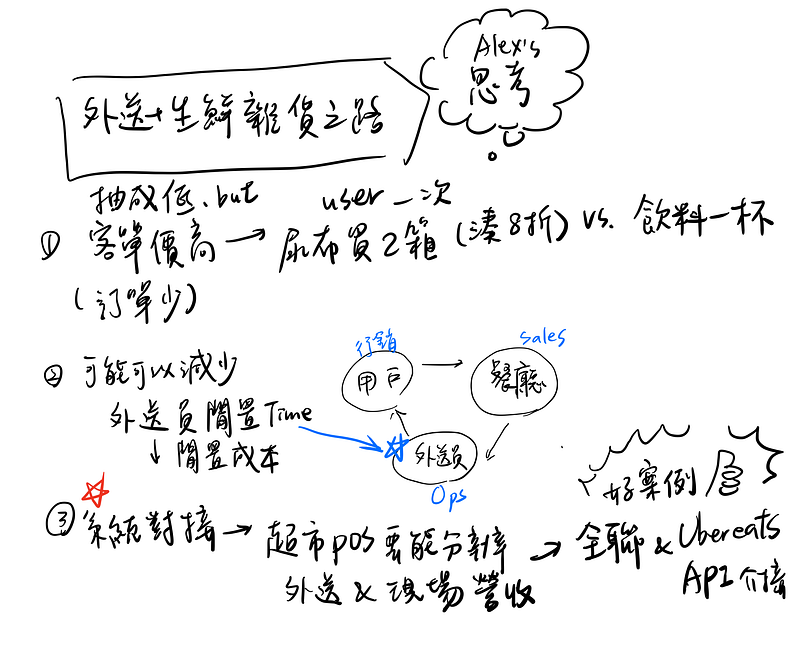 Alex's
思考
外送+生鮮雜貨之路
抽成低、but user 一次
① 客單價高 → 尿布買2箱 (湊8折) vs. 飲料一杯
(訂單少)
② 可能可以減少
外送員閒置Time
↓ 閒置成本
行銷
用戶
sales
餐廳
外送員
Ops
③ 系統對接 → 超市pos要能分辨 → 全聯 & Ubereats
外送 & 現場營收
API 介接
好案例